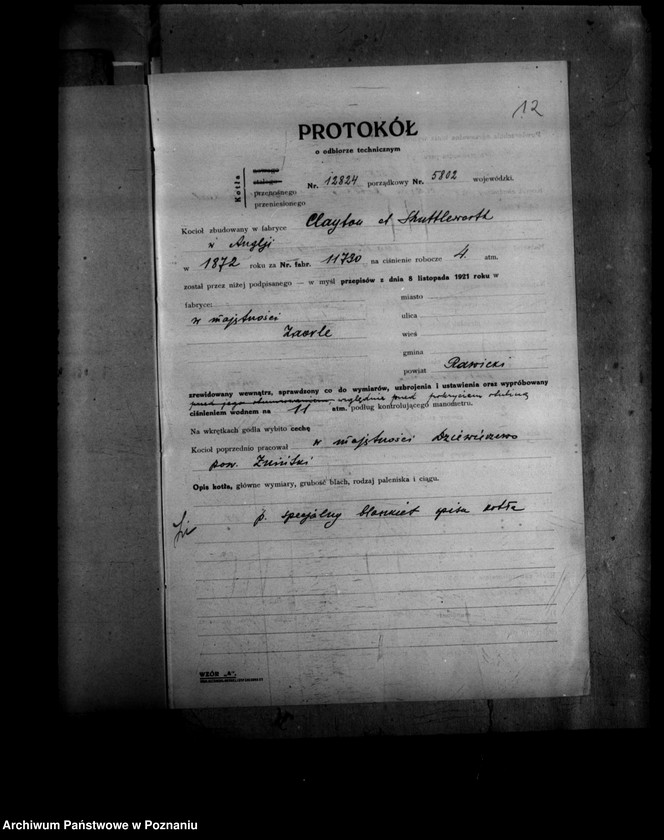 12
PROTOKÓŁ
o odbiorze technicznym
Kotła
nowego
stałego
przenośnego
przeniesionego
Nr. 12824 porządkowy Nr. 5802 wojewódzki.
Kocioł zbudowany w fabryce Clayton et Shuttleworth
w Anglji
w 1872 roku za Nr. fabr. 11730 na ciśnienie robocze 4 atm.
został przez niżej podpisanego — w myśl przepisów z dnia 8 listopada 1921 roku w
fabryce:
w majętności
miasto
ulica
wieś
gmina
powiat Rawicki
zrewidowany wewnątrz, sprawdzony co do wymiarów, uzbrojenia i ustawienia oraz wypróbowany
przed jego obmurowaniem, względnie przed pokryciem otuliną
ciśnieniem wodnem na 11 atm. podług kontrolującego manometru.
Na wkrętkach godła wybito cechę
Kocioł poprzednio pracował w majętności Dziewierzewo
pow. Żniński
Opis kotła, główne wymiary, grubość blach, rodzaj paleniska i ciągu.
p. specjalny blankiet opisu kotła
WZÓR „A".
Archiwum Państwowe w Poznaniu